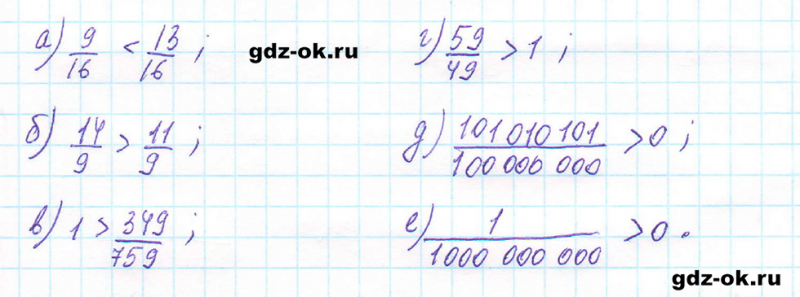 а) 9/16 < 13/16 ;
gdz-ok.ru
г) 59/49 > 1 ;
б) 14/9 > 11/9 ;
д) 101 010 101/100 000 000 > 0 ;
в) 1 > 349/759 ;
е) 1/1000 000 000 > 0 .
gdz-ok.ru